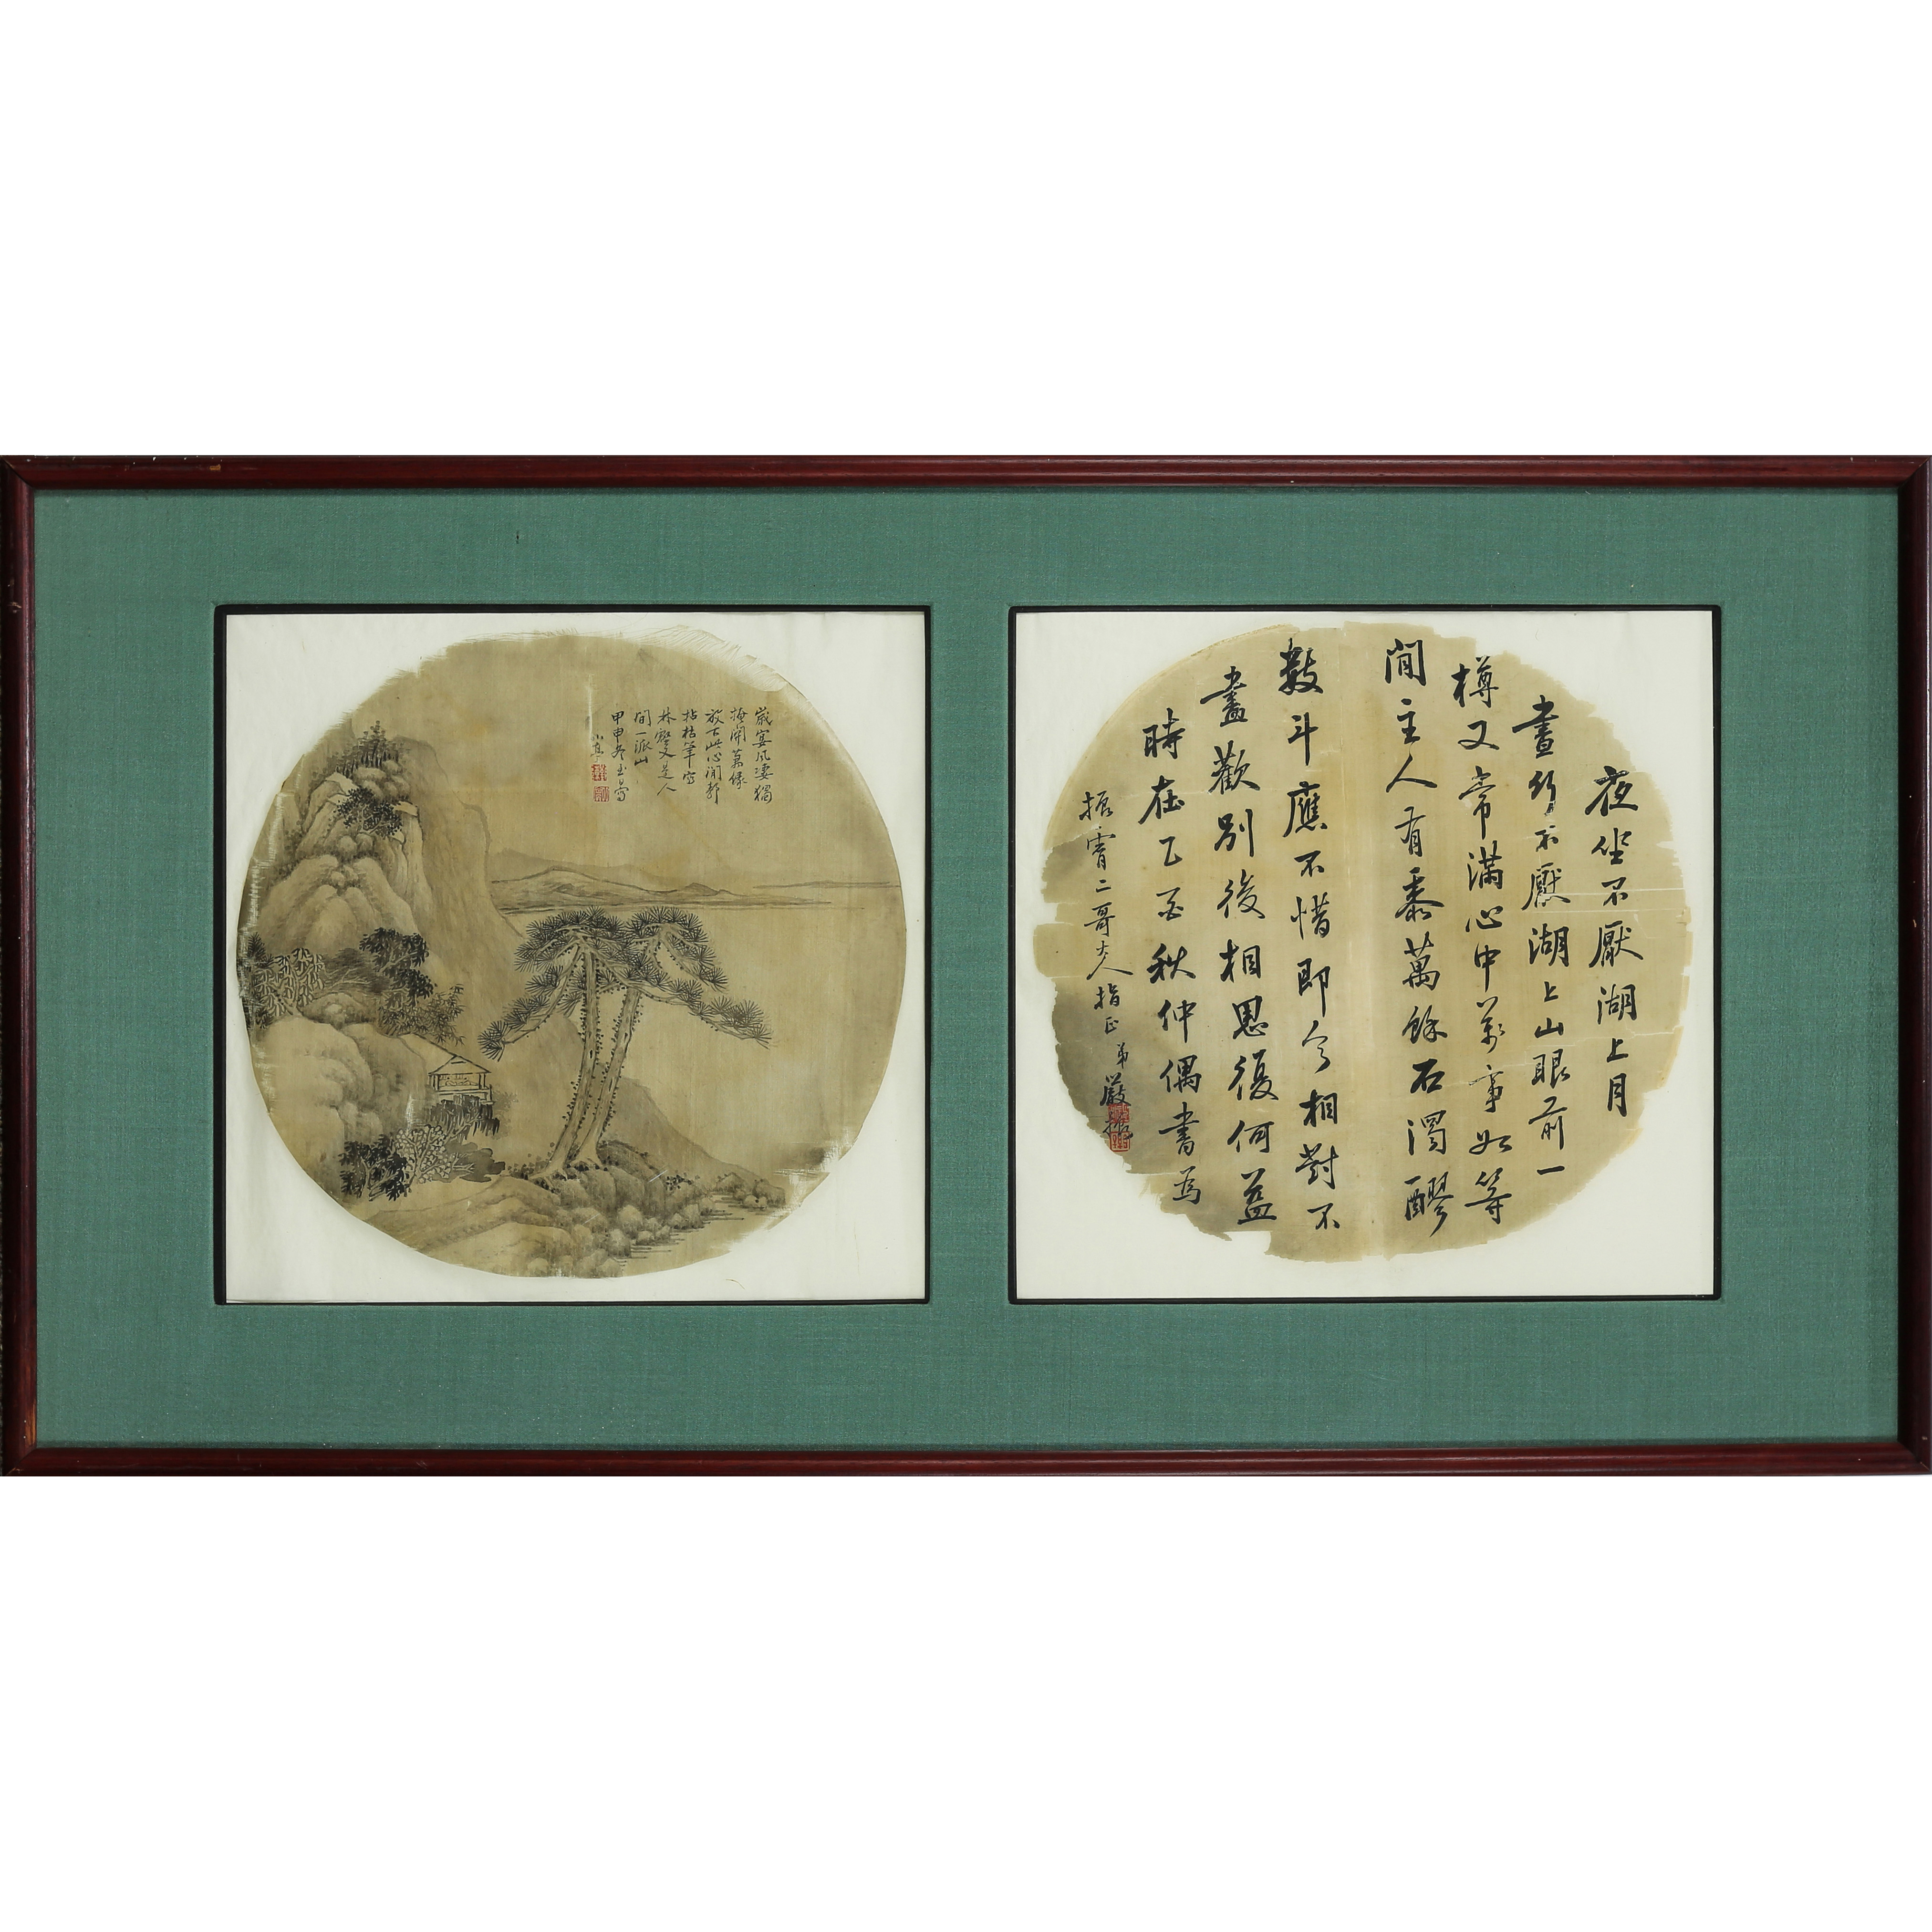 歲寒風淒獨
梅開萬緣
放下此心閒靜
拈枯筆寫
林壑又是人
間一派山
甲申冬玉昌寫
夜坐不厭湖上月
晝行不厭湖上山眼前一
樽又常滿心中萬事如等
閒主人有黍萬餘石濁醪
數斗應不惜即今相對不
盡歡別後相思復何益
時在乙酉秋仲偶書為
振霄二哥大人指正 弟嚴振